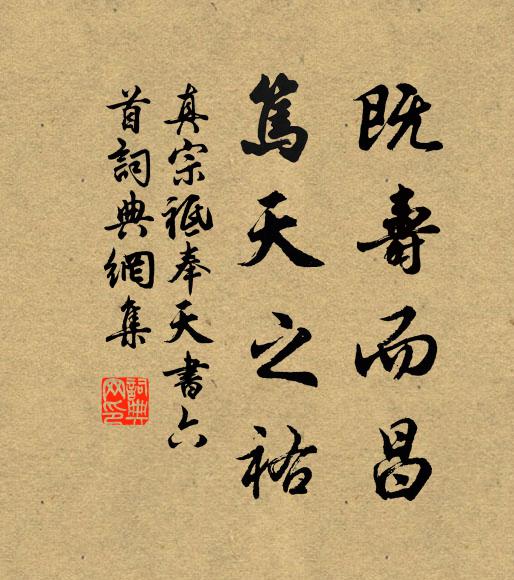 既壽而昌
篤天之祐
真宗祗奉天書六
首詞典網集
詞典
网印